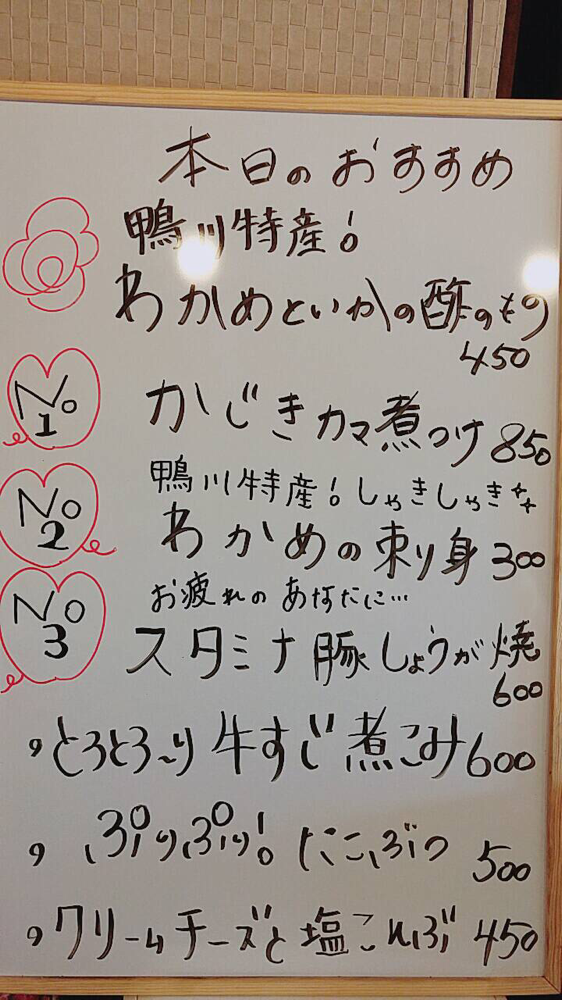 本日のおすすめ
鴨川特産!
わかめといかの酢のもの
450
No
1
かじきカマ煮つけ 850
鴨川特産!しゃきしゃき
No
2
わかめの刺り身 300
お疲れのあなたに…
No
3
スタミナ豚しょうが焼
600
とろとろ〜り牛すじ煮こみ600
ぷりぷり!にこぶつ 500
クリームチーズと塩こんぶ 450